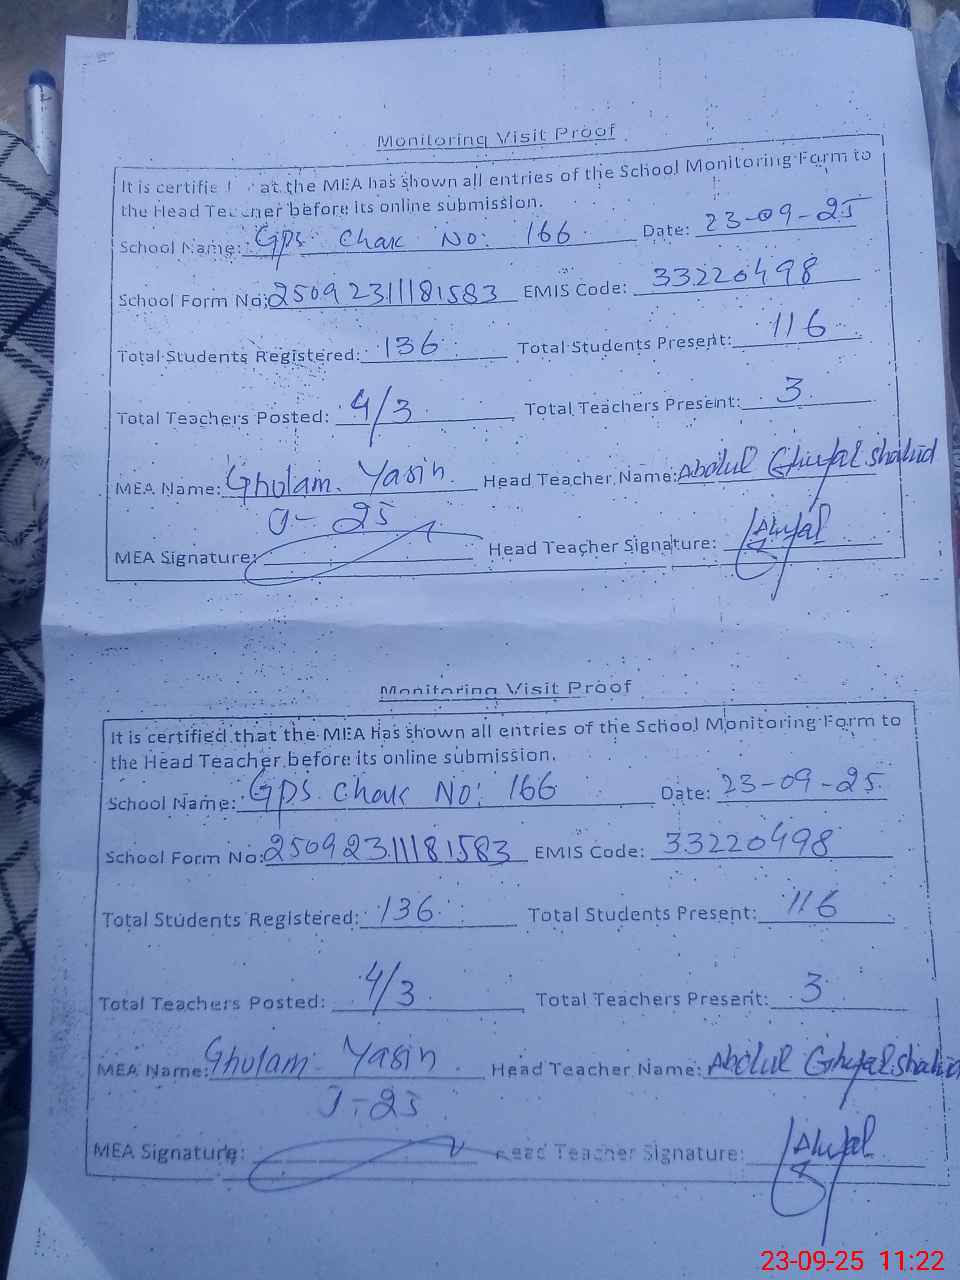 Monitoring Visit Proof
It is certified that the MEA has shown all entries of the School Monitoring Form to
the Head Teacher before its online submission.
School Name: GPS Chak No: 166 Date: 23-09-25
School Form No: 25092311181583 EMIS Code: 33220498
Total Students Registered: 136 Total Students Present: 116
Total Teachers Posted: 4/3 Total Teachers Present: 3
MEA Name: Ghulam Yasin Head Teacher Name: Abdul Shahid
MEA Signature: Head Teacher Signature:
Monitoring Visit Proof
It is certified that the MEA has shown all entries of the School Monitoring Form to
the Head Teacher before its online submission.
School Name: GPS Chak No: 166 Date: 23-09-25
School Form No: 25092311181583 EMIS Code: 33220498
Total Students Registered: 136 Total Students Present: 116
Total Teachers Posted: 4/3 Total Teachers Present: 3
MEA Name: Ghulam Yasin Head Teacher Name: Abdul Shahid
MEA Signature: Head Teacher Signature:
23-09-25 11:22